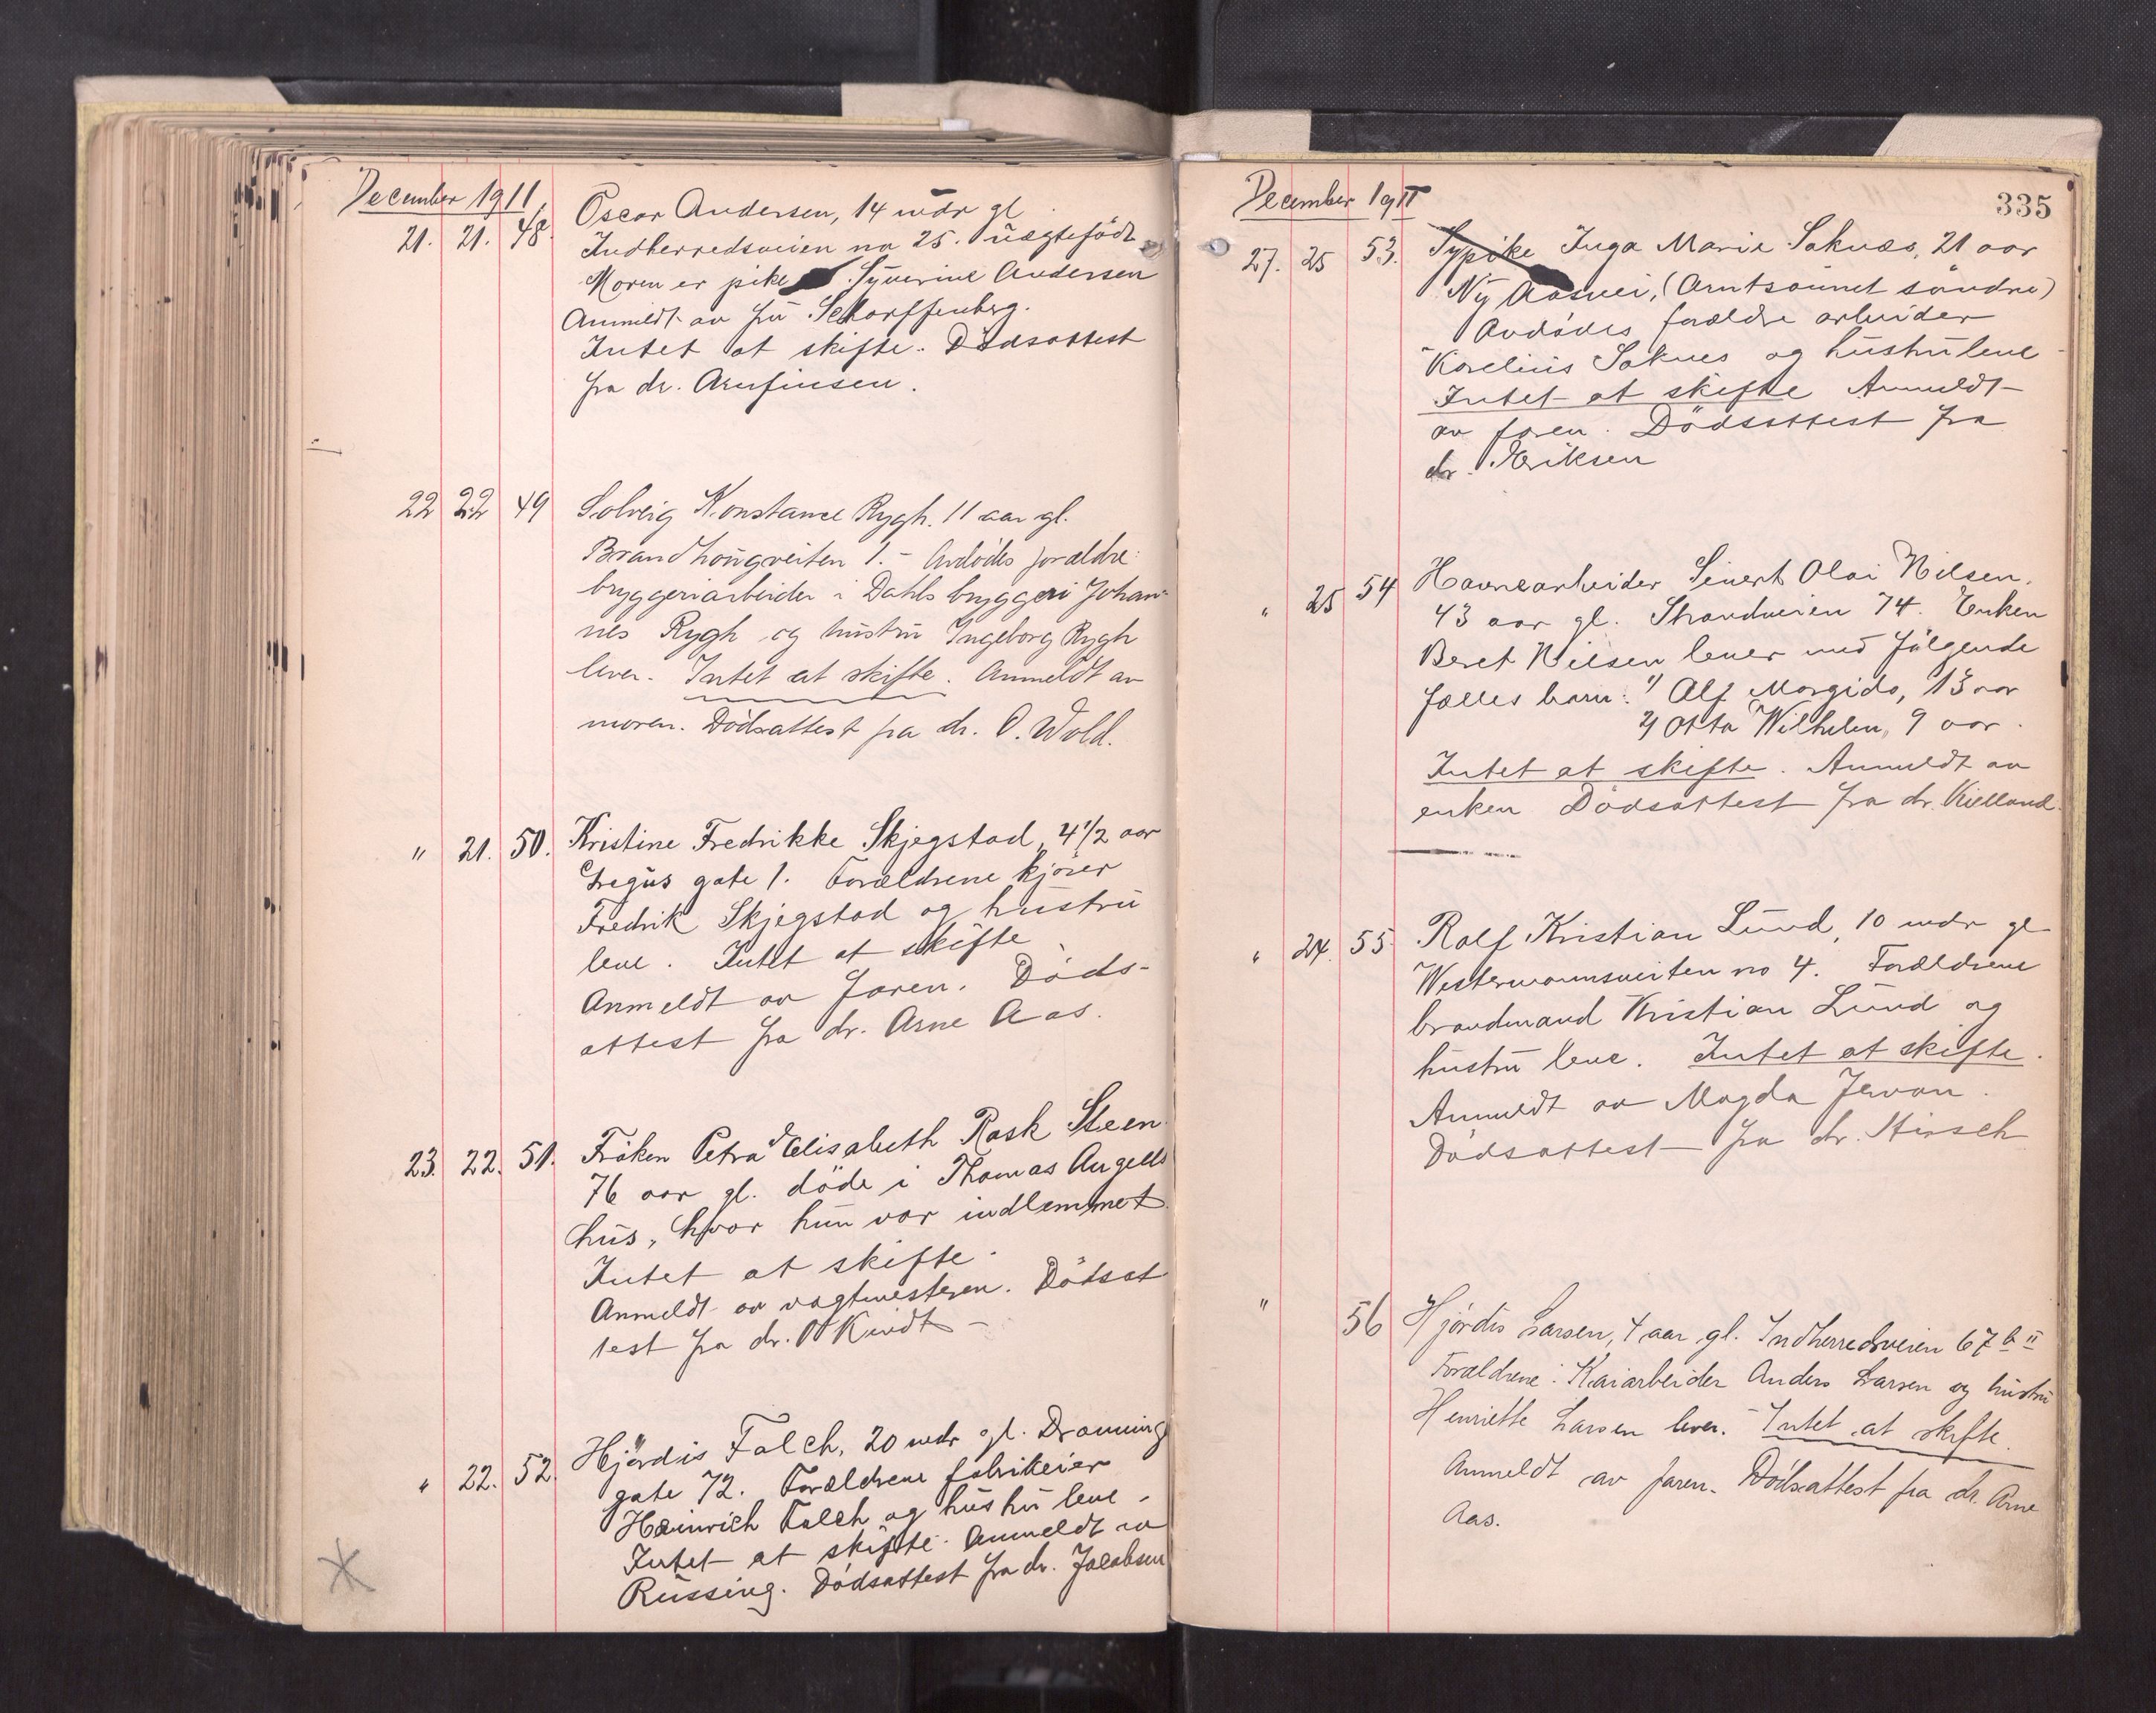 December 1911
21. 21. 48. Oscar Andersen, 14 mdr gl
Indherredsveien no 25. uægtefödt
Moren er pike Syverine Andersen
Anmeldt av fru Scharffenberg.
Intet at skifte. Dödsattest
fra dr. Arnfinsen.
22 22 49 Solveig Konstance Rygh. 11 aar gl.
Brandhaugveiten 1. - Avdödes forældre:
bryggeriarbeider i Dahls bryggeri Johan-
nes Rygh og hustru Ingeborg Rygh
lever. Intet at skifte. Anmeldt av
moren. Dödsattest fra dr. O. Wold.
" 21. 50. Kristine Fredrikke Skjegstad, 4 1/2 aar
gate 1. Forældrene kjörer
Fredrik Skjegstad og hustru
leve. Intet at skifte
Anmeldt av faren. Döds-
attest fra dr. Arne Aas.
23. 22. 51. Fröken Petra Elisabeth Rask Steen
76 aar gl. döde i Thomas Angells
hus, hvor hun var indlemmet
Intet at skifte.
Anmeldt av vagtmesteren. Dödsat
test fra dr. Kindt -
" 22. 52. Hjördis Falch, 20 mdr gl. Dronning
gate 72. Forældrene fabrikeier
Heinrich Falch og hustru leve.
Intet at skifte. Anmeldt av
Russing. Dödsattest fra dr. Jacobsen
335
December 1911
27. 25 53. Sypike Inga Marie Saknæs, 21 aar
Ny Aasvei, (Arntsaunet söndre)
Avdödes forældre arbeider
Karelius Saknes og hustru leve
Intet at skifte Anmeldt
av faren. Dödsattest fra
dr. Eriksen
" 25 54 Havnearbeider Sivert Olai Nilsen.
43 aar gl. Strandveien 74. Enken
Beret Nilsen lever med fölgende
fælles barn: 1) Alf Margido, 13 aar
2) Otto Wilhelm, 9 aar.
Intet at skifte. Anmeldt av
enken Dödsattest fra dr. Kielland.
" 24. 55 Rolf Kristian Lund, 10 mdr gl
Westermannsveiten no 4. Forældrene
brandmand Kristian Lund og
hustru leve. Intet at skifte.
Anmeldt av Magda Jervan.
Dödsattest fra dr. Hirsch
" 56 Hjördis Larsen, 4 aar gl. Indherredsveien 67 b II
Forældrene: Kaiarbeider Anders Larsen og hustru
Henriette Larsen lever. Intet at skifte.
Anmeldt av faren. Dödsattest fra dr. Arne
Aas.